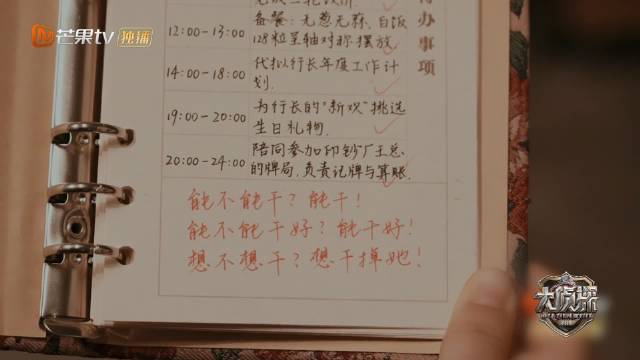 芒果tv 独播
待办事项
12:00-13:00 备餐：无葱无蒜、白饭
128粒呈轴对称摆放
14:00-18:00 代拟行长年度工作计
划.
19:00-20:00 为行长的"新欢"挑选
生日礼物.
20:00-24:00 陪同参加印钞厂王总
的牌局,负责记牌与算账.
能不能干？能干！
能不能干好？能干好！
想不想干？想干掉她！
大侦探